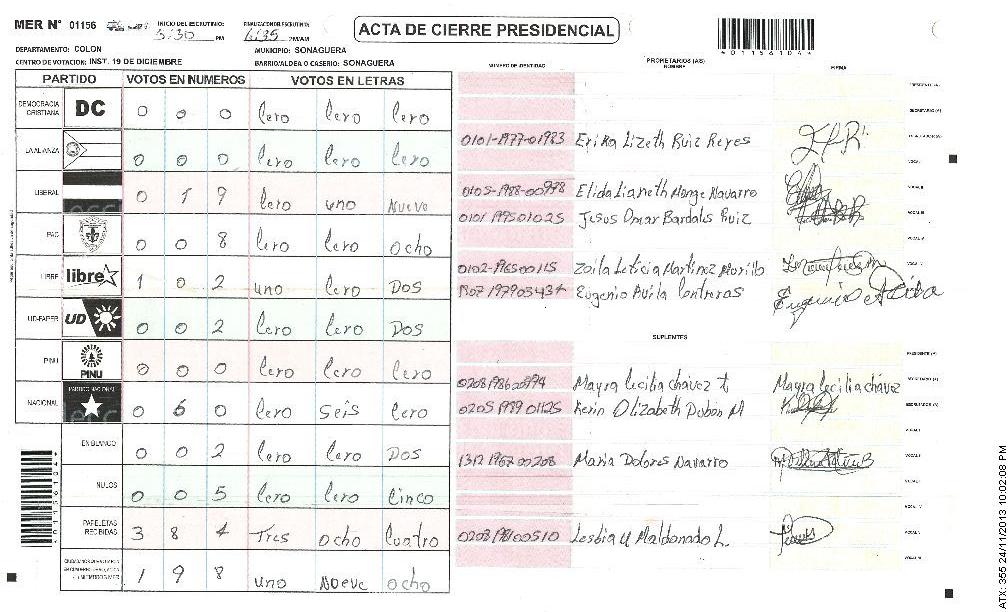 MER N° 01156 INICIO DEL ESCRUTINIO: 5:30 PM FINALIZACION ESCRUTINIO: 6:35 PM/AM
ACTA DE CIERRE PRESIDENCIAL
4011561044
DEPARTAMENTO: COLON MUNICIPIO: SONAGUERA
CENTRO DE VOTACION: INST. 19 DE DICIEMBRE BARRIO/ALDEA O CASERIO: SONAGUERA
PARTIDO VOTOS EN NUMEROS VOTOS EN LETRAS
DEMOCRACIA CRISTIANA DC 0 0 0 Cero Cero Cero
LA ALIANZA 0 0 0 Cero Cero Cero
LIBERAL 0 1 9 Cero uno Nueve
PAC 0 0 8 Cero Cero ocho
LIBRE libre 1 0 2 uno Cero Dos
UD-FAPER UD 0 0 2 Cero Cero Dos
PINU PINU 0 0 0 Cero Cero Cero
NACIONAL PARTIDO NACIONAL 0 6 0 Cero seis Cero
EN BLANCO 0 0 2 Cero Cero Dos
NULOS 0 0 5 Cero Cero Cinco
PAPELETAS RECIBIDAS 3 8 4 Tres ocho Cuatro
1 9 8 uno Nueve ocho
NUMERO DE IDENTIDAD PROPIETARIOS (AS) NOMBRE FIRMA
PRESIDENTE (A)
SECRETARIO (A)
0101-1977-01983 Erika Lizeth Ruiz Reyes
VOCAL I
0105-1988-00998 Elida Lianeth Monge Navarro VOCAL II
0101199501025 Jesus Omar Bardales Ruiz VOCAL III
0102-1965-00115 Zoila Leticia Martinez Murillo
Eugenio Avila Contreras Eugenio Avila
SUPLENTES
PRESIDENTE (A)
0208198600994 Mayra Cecilia chávez Mayra Cecilia chávez SECRETARIO (A)
0205198901125 Kerin Olizabeth Dubon M ESCRUTADOR (A)
VOCAL I
1312196700208 Maria Dolores Navarro VOCAL II
VOCAL III
VOCAL IV
0208198100510 Lesbia U Maldonado L. VOCAL V
ATX: 355 24/11/2013 10:02:08 PM